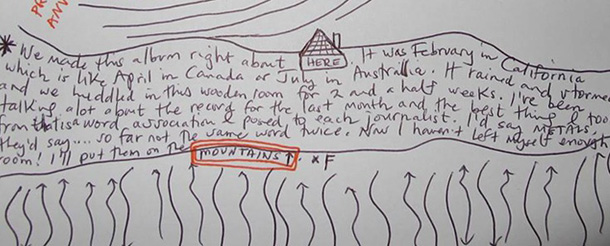 PR
AM
* We made this album right about HERE. It was February in California
which is like April in Canada or July in Austrilla. It rained and stormed
and we huddled in this wooden room for 2 and a half weeks. I've been
talking alot about the record for the last month and the best thing I too
from that is a word association I posed to each journalist. I'd say METALS,
they'd say.... so far not the same word twice. Now I haven't left myself enough
room! I'll put them on the MOUNTAINS ↑. x F